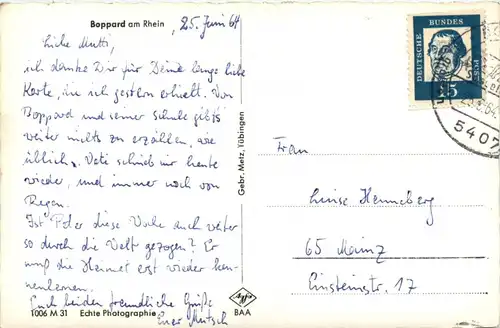 Boppard am Rhein
25. Juni 64
Liebe Mutti,
ich danke Dir für Deine lange liebe
Karte, die ich gestern erhielt. Von
Boppard und seiner Schule gibt's
weiter nichts zu erzählen, wie
üblich. Vati schrieb mir heute
wieder, und immer noch von
Regen.
Ist Peter diese Woche auch weiter
so durch die Welt gezogen? Er
muß die Heimat erst wieder ken-
nenlernen.
Euch beiden freundliche Grüße
Euer
1006 M 31 Echte Photographie
Gebr. Metz, Tübingen
Agfa
BAA
DEUTSCHE BUNDESPOST
15
5407
Frau
Luise Henneberg
65 Mainz
Einsteinstr. 17